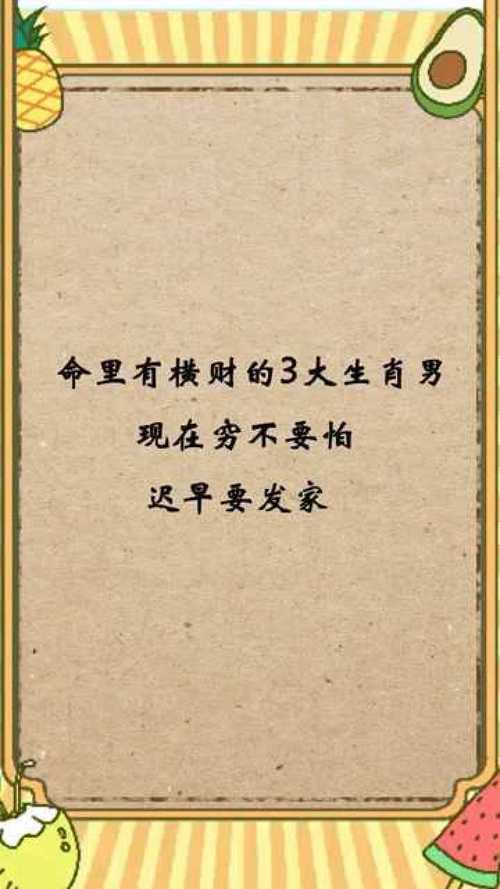 命里有横财的3大生肖男
现在穷不要怕
迟早要发家